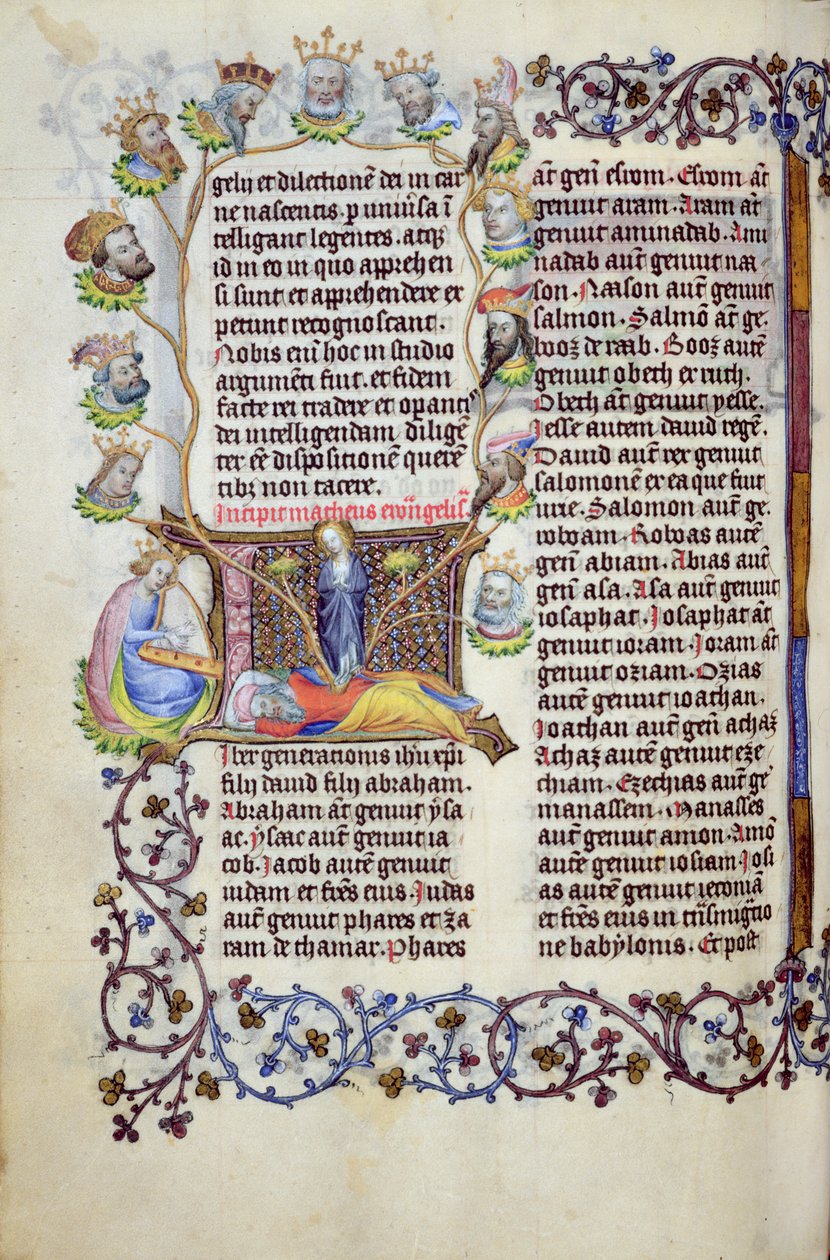 gelij et dilectionē dei in car
ne nascentis. p uniūsa ī
telligant legentes. atqȝ
id in eo in quo apprehen
si sunt et apprehendere ex
petunt recognoscant.
Nobis eni hoc in studio
argumēti fuit. et fidem
facte rei tradere et opanti
dei intelligendam diligē
ter eē dispositionē querē
tibȝ non tacere.
Incipit matheus ewngelist
L
Iber generationis ihu xpi
filij david filij abraham.
Abraham āt genuit ysa
ac. ysaac autē genuit ia
cob. Jacob autē genuit
iudam et frēs eius. Judas
autē genuit phares et za
ram de thamar. Phares
āt genī esrom. Esrom āt
genuit aram. Aram āt
genuit aminadab. Ami
nadab autē genuit naa
son. Naason autē genuit
salmon. Salmō āt ge.
booz de raab. Booz autē
genuit obeth ex ruth.
Obeth āt genuit yesse.
Jesse autem david regē.
David autē rex genuit
salomonē ex ea que fuit
urie. Salomon autē ge.
roboam. Roboas autē
genī abiam. Abias autē
genī asa. Asa autē genuit
iosaphat. Josaphat āt
genuit ioram. Joram āt
genuit oziam. Ozias
autē genuit ioathan.
Joathan autē genī achaz
Achaz autē genuit eze
chiam. Ezechias autē ge
manassem. Manasses
autē genuit amon. Amō
autē genuit iosiam. Josi
as autē genuit ieconiā
et frēs eius in trāsmigrtio
ne babylonis. Et post